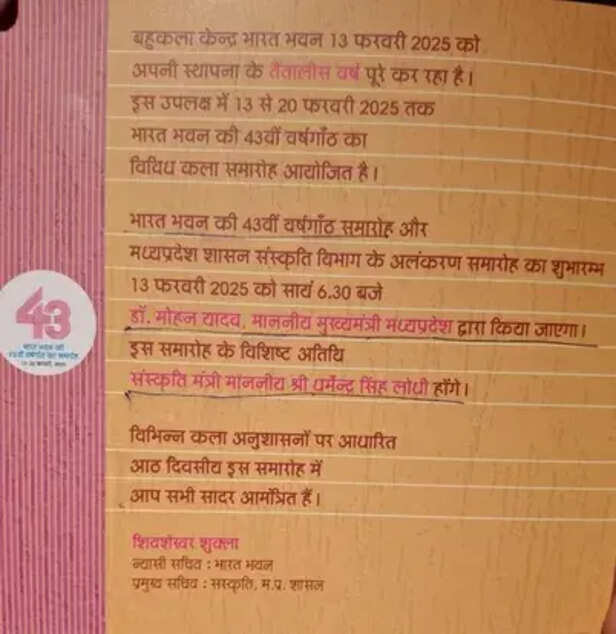 बहुकला केन्द्र भारत भवन 13 फरवरी 2025 को
अपनी स्थापना के तैंतालीस वर्ष पूरे कर रहा है।
इस उपलक्ष में 13 से 20 फरवरी 2025 तक
भारत भवन की 43वीं वर्षगाँठ का
विविध कला समारोह आयोजित है।
भारत भवन की 43वीं वर्षगाँठ समारोह और
मध्यप्रदेश शासन संस्कृति विभाग के अलंकरण समारोह का शुभारम्भ
13 फरवरी 2025 को सायं 6.30 बजे
डॉ. मोहन यादव, माननीय मुख्यमंत्री मध्यप्रदेश द्वारा किया जाएगा।
इस समारोह के विशिष्ट अतिथि
संस्कृति मंत्री माननीय श्री धर्मेन्द्र सिंह लोधी होंगे।
विभिन्न कला अनुशासनों पर आधारित
आठ दिवसीय इस समारोह में
आप सभी सादर आमंत्रित हैं।
शिवशेखर शुक्ला
न्यासी सचिव : भारत भवन
प्रमुख सचिव : संस्कृति, म.प्र. शासन
43
भारत भवन की